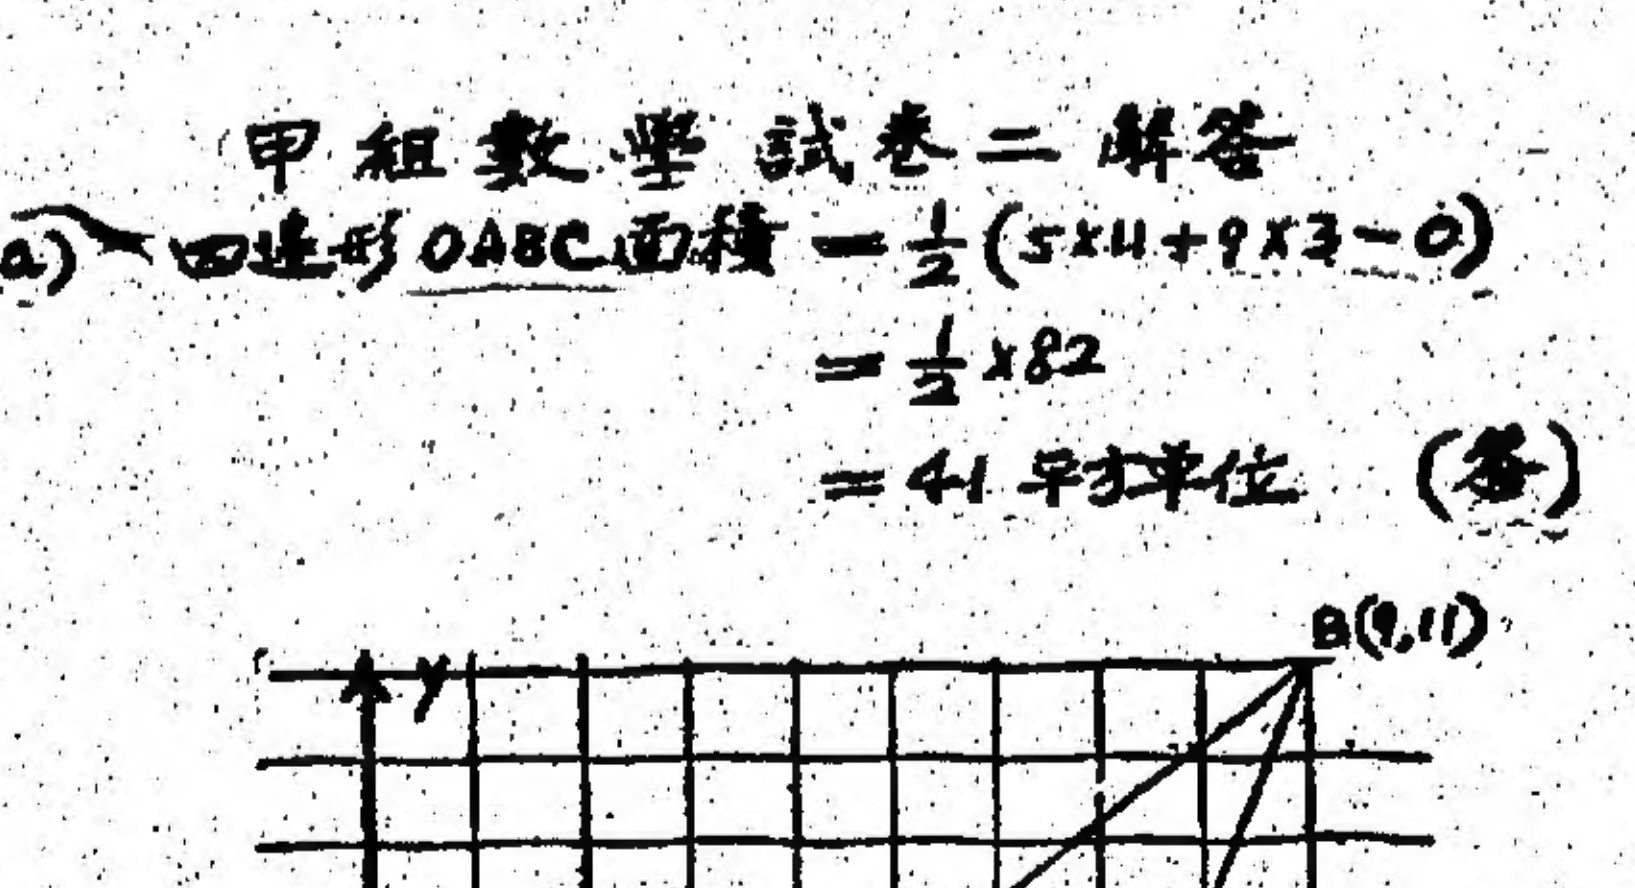 甲組數學試卷二解答
a) 四邊形OABC面積 = 1/2 (5×11+9×3-0)
= 1/2 ×82
= 41 平方單位 (答)
B(9,11)
y